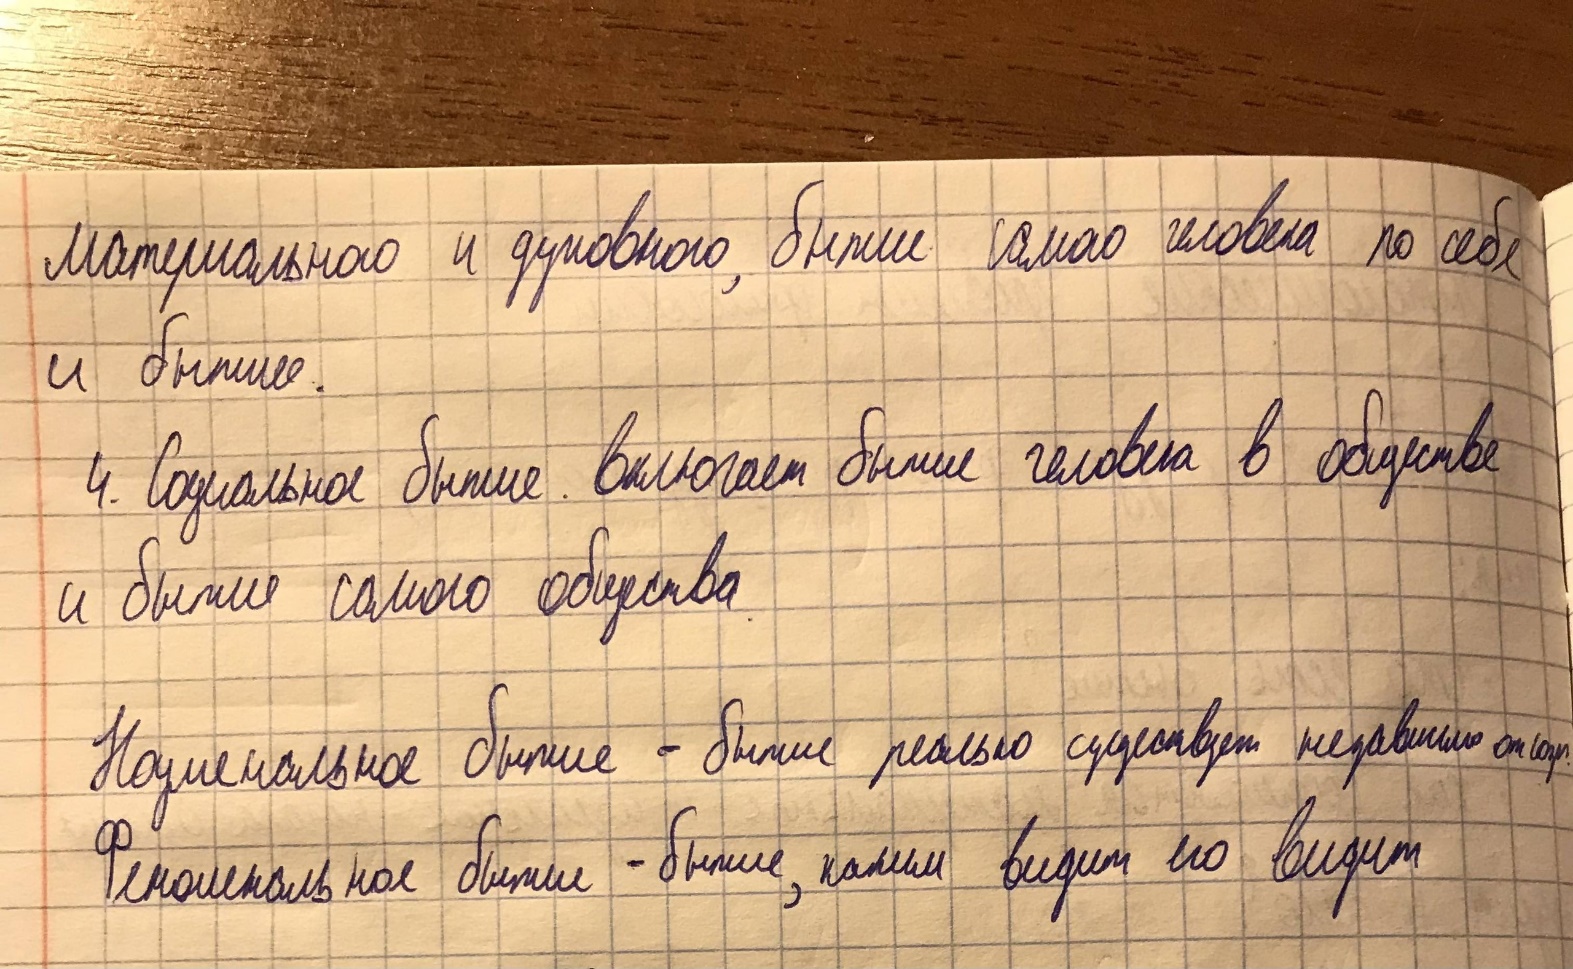 материального и духовного, бытие самого человека по себе
и бытие.
4. Социальное бытие. Включает бытие человека в обществе
и бытие самого общества
Ноуменальное бытие - бытие реально существует независимо от
Феноменальное бытие - бытие, каким видит его видит